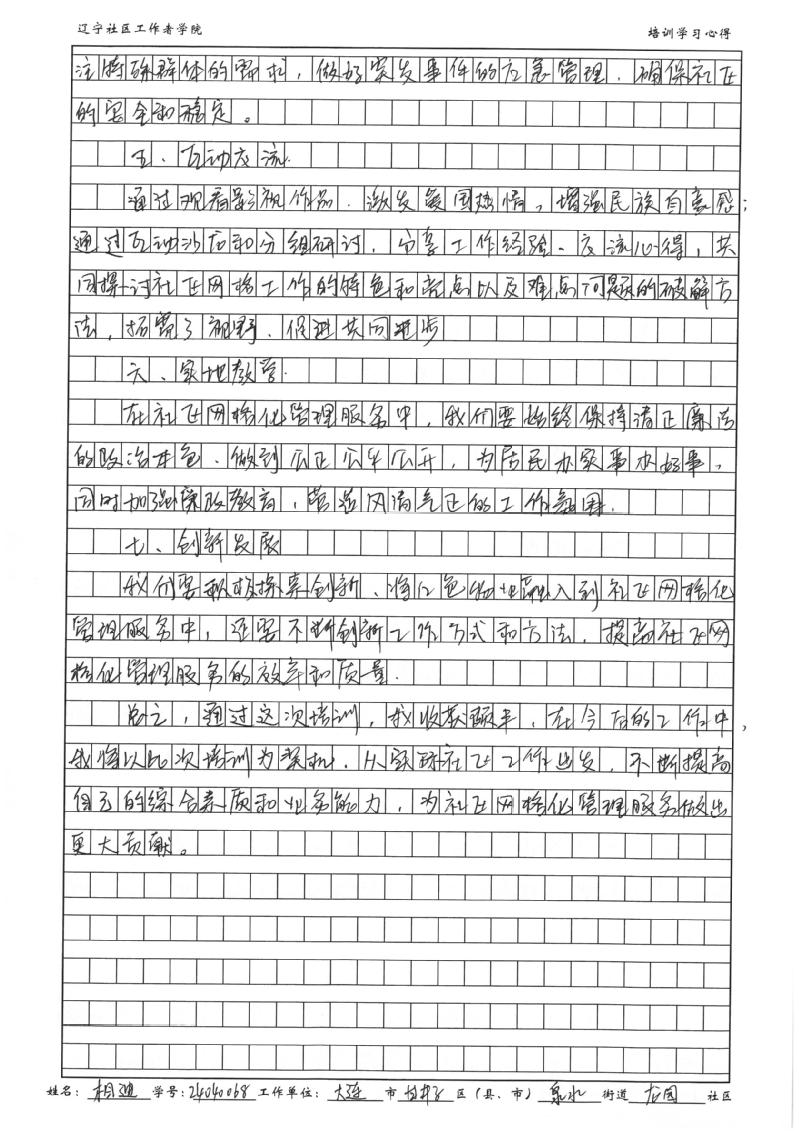 辽宁社区工作者学院 培训学习心得
注特殊群体的需求，做好突发事件的应急管理，确保社区
的安全和稳定。
五、互动交流.
通过观看影视作品，激发爱国热情，增强民族自豪感；
通过互动沙龙和分组研讨，分享工作经验、交流心得，共
同探讨社区网格工作的特色和亮点以及难点问题的破解方
法，拓宽了视野、促进共同进步
六、实地教学.
在社区网格化管理服务中，我们要始终保持清正廉洁
的政治本色、做到公正公平公开，为居民办实事办好事。
同时加强廉政教育，营造风清气正的工作氛围.
七、创新发展
我们要积极探索创新、将红色物业融入到社区网格化
管理服务中，还要不断创新工作方式和方法，提高社区网
格化管理服务的效率和质量.
总之，通过这次培训，我收获颇丰，在今后的工作中，
我将以此次培训为契机，从实际社区工作出发，不断提高
自己的综合素质和业务能力，为社区网格化管理服务做出
更大贡献。
姓名：相迪 学号:24040068 工作单位：大连 市 甘井子 区（县、市） 泉水 街道 龙园 社区